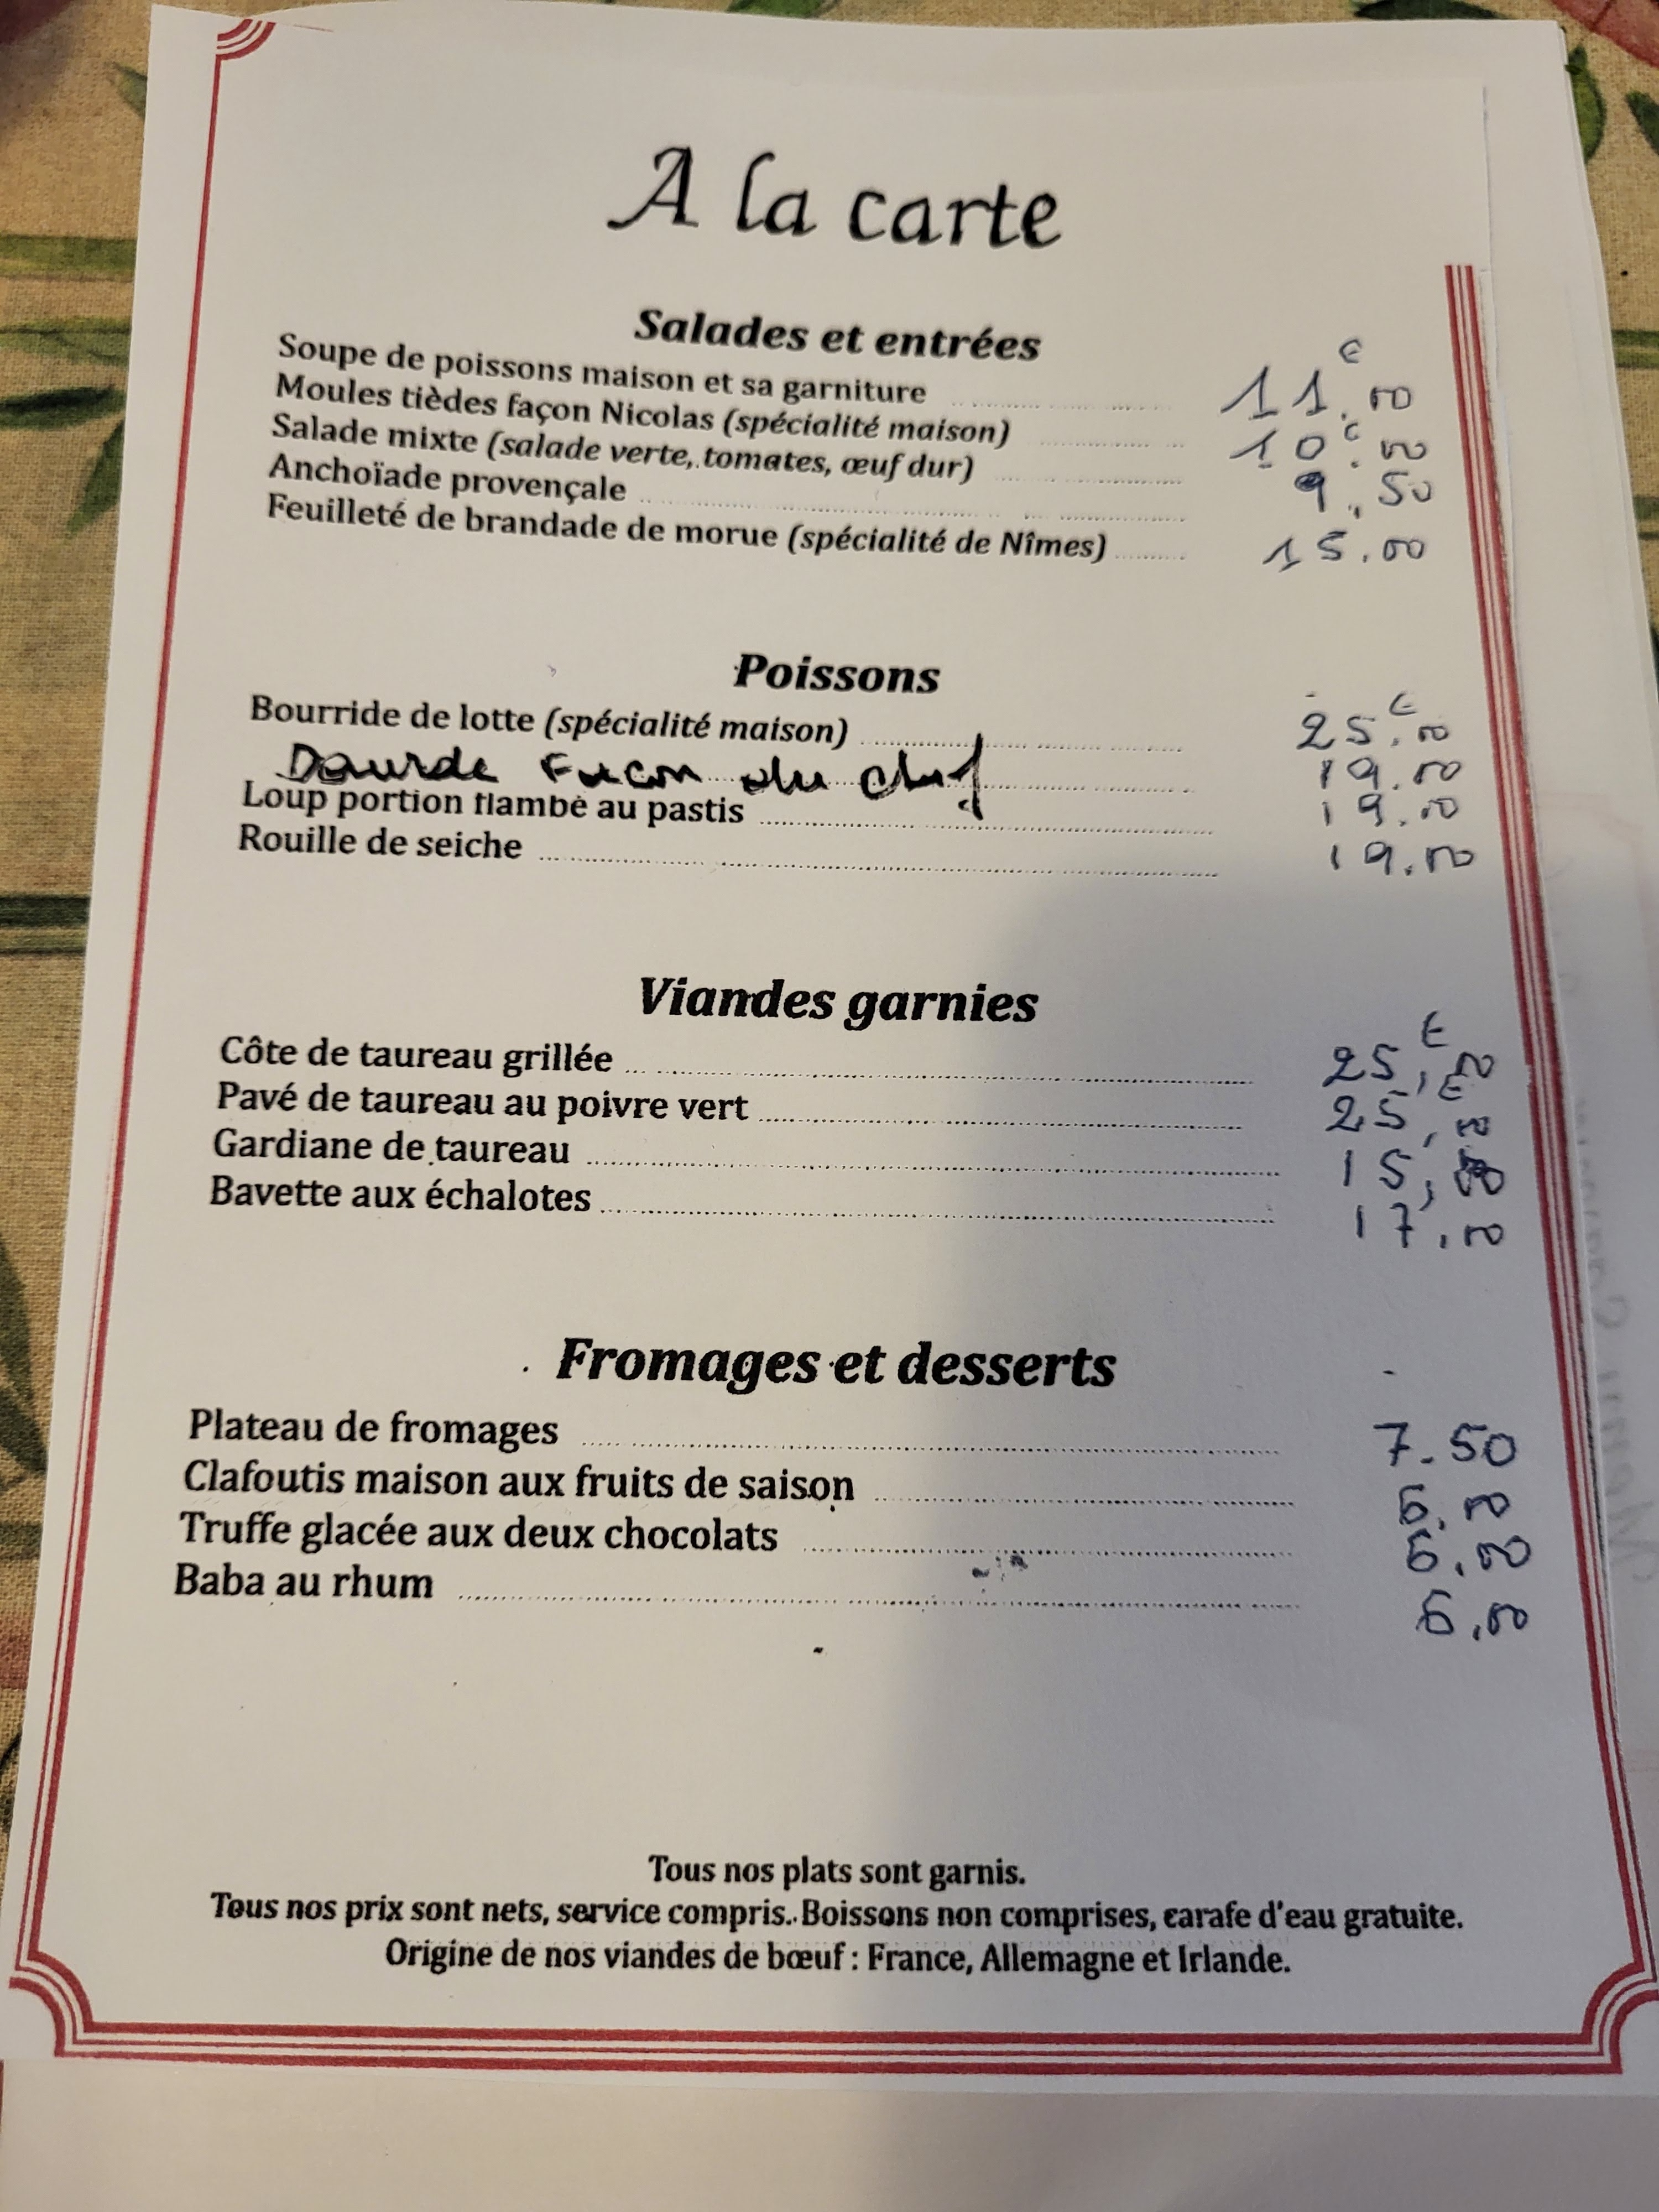 A la carte
Salades et entrées
Soupe de poissons maison et sa garniture 11.00 €
Moules tièdes façon Nicolas (spécialité maison) 10.00 €
Salade mixte (salade verte, tomates, œuf dur) 9.50
Anchoïade provençale
Feuilleté de brandade de morue (spécialité de Nîmes) 15.00
Poissons
Bourride de lotte (spécialité maison) 25.00 €
Daurde Facon du chef 19.00
Loup portion flambé au pastis 19.00
Rouille de seiche 19.00
Viandes garnies
Côte de taureau grillée 25,00 €
Pavé de taureau au poivre vert 25,00 €
Gardiane de taureau 15,00
Bavette aux échalotes 17,00
Fromages et desserts
Plateau de fromages 7.50
Clafoutis maison aux fruits de saison 6.00
Truffe glacée aux deux chocolats 6.00
Baba au rhum 6,00
Tous nos plats sont garnis.
Tous nos prix sont nets, service compris. Boissons non comprises, carafe d'eau gratuite.
Origine de nos viandes de bœuf : France, Allemagne et Irlande.